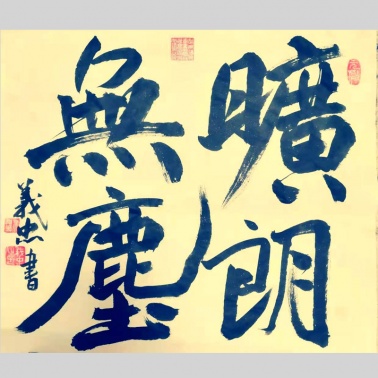 曠朗
無塵
義忠書